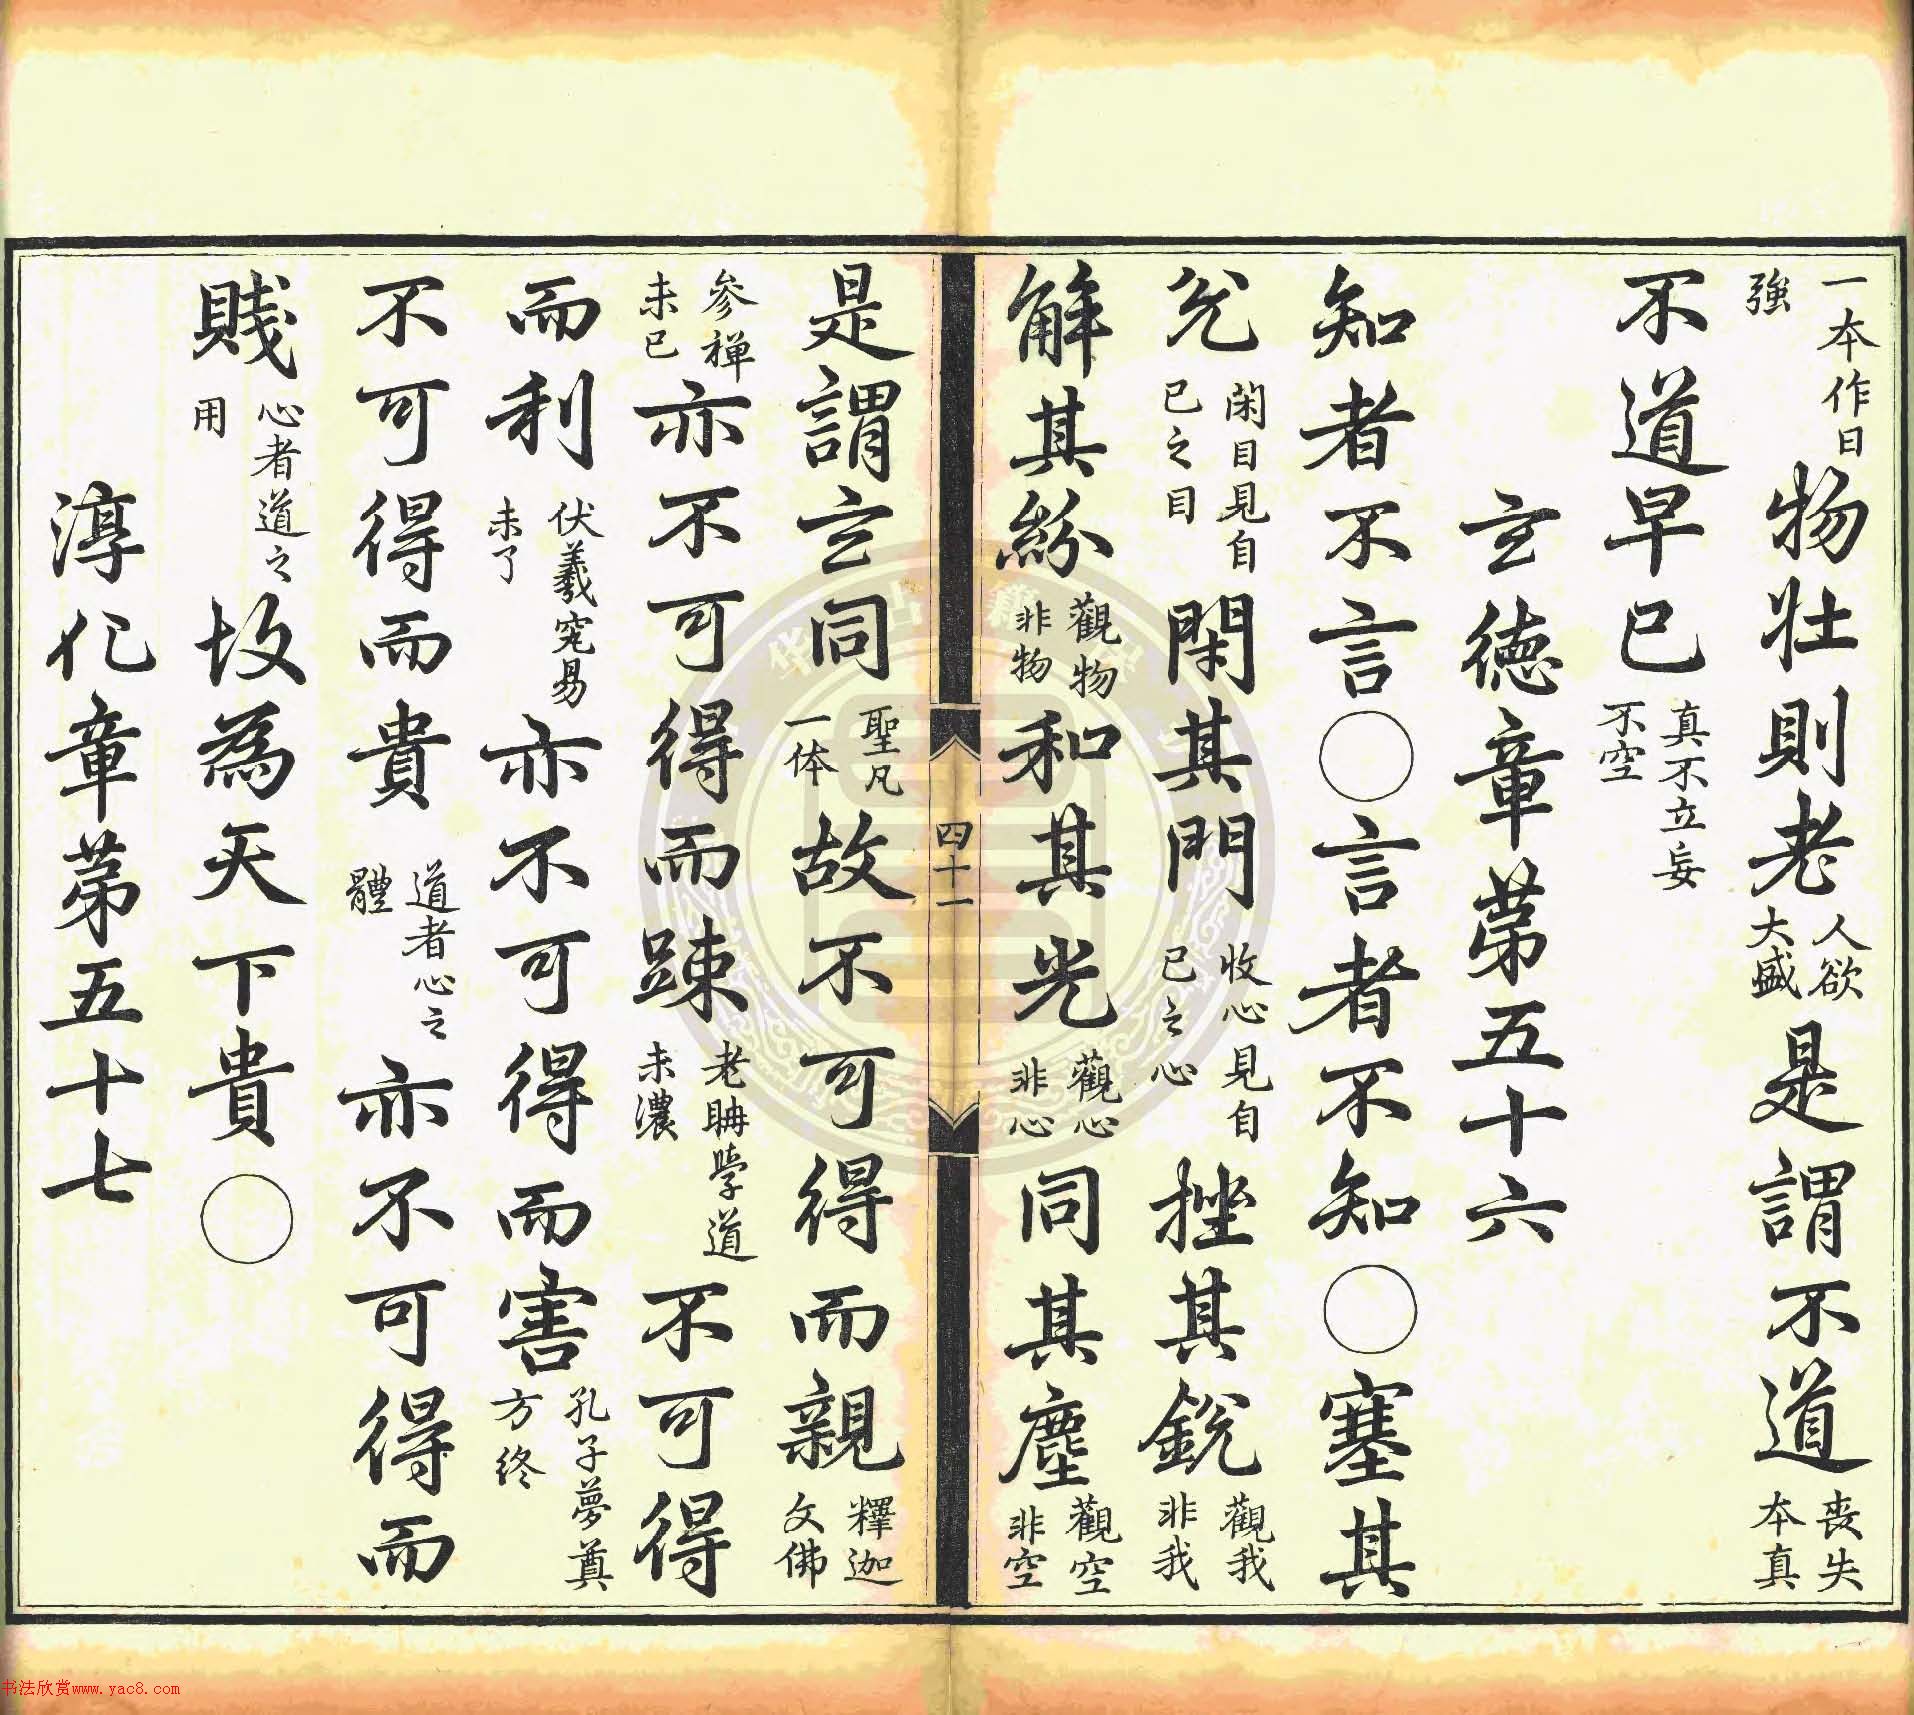 一本作曰強物壯則老人欲大盛是謂不道喪失本真
不道早已真不立妄不空
玄德章第五十六
知者不言○言者不知○塞其
兌閉目見自己之目閉其門收心見自己之心挫其銳觀我非我
解其紛觀物非物和其光觀心非心同其塵觀空非空
四十一
是謂玄同聖凡一体故不可得而親釋迦文佛
參禪未已亦不可得而踈老聃學道未濃不可得
而利伏羲究易未了亦不可得而害孔子夢奠方終
不可得而貴道者心之體亦不可得而
賤心者道之用故為天下貴○
淳化章第五十七
书法欣赏www.yac8.com